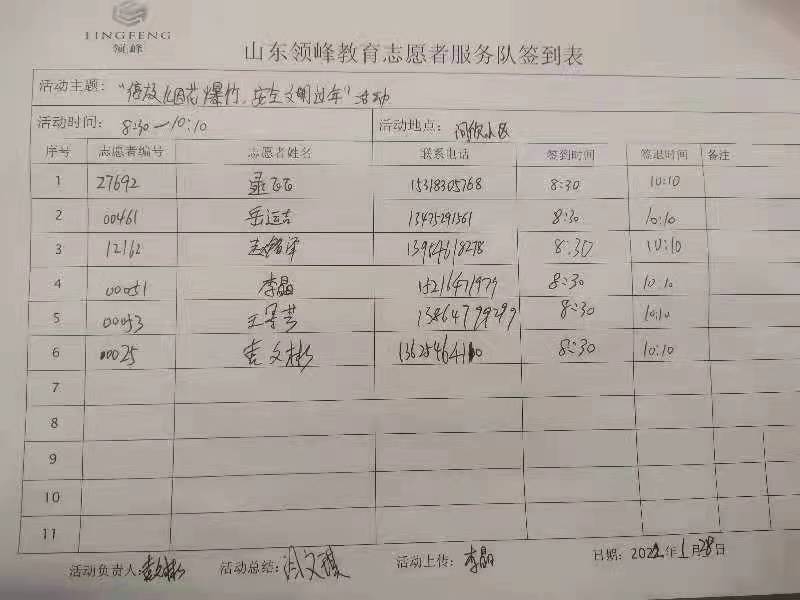 LINGFENG
领峰
山东领峰教育志愿者服务队签到表
活动主题：“ 爆竹，安全文明过年”活动
活动时间： 8:30—10:10 活动地点： 小区
序号 志愿者编号 志愿者姓名 联系电话 签到时间 签退时间 备注
1 27692 15318305768 8:30 10:10
2 00461 岳运吉 13475291561 8:30 10:10
3 12162 8:30 10:10
4 00051 李晶 8:30 10:10
5 00053 13864799299 8:30 10:10
6 00025 袁文彬 8:30 10:10
7
8
9
10
11
活动负责人： 活动总结： 活动上传：李晶 日期：2022年1月28日